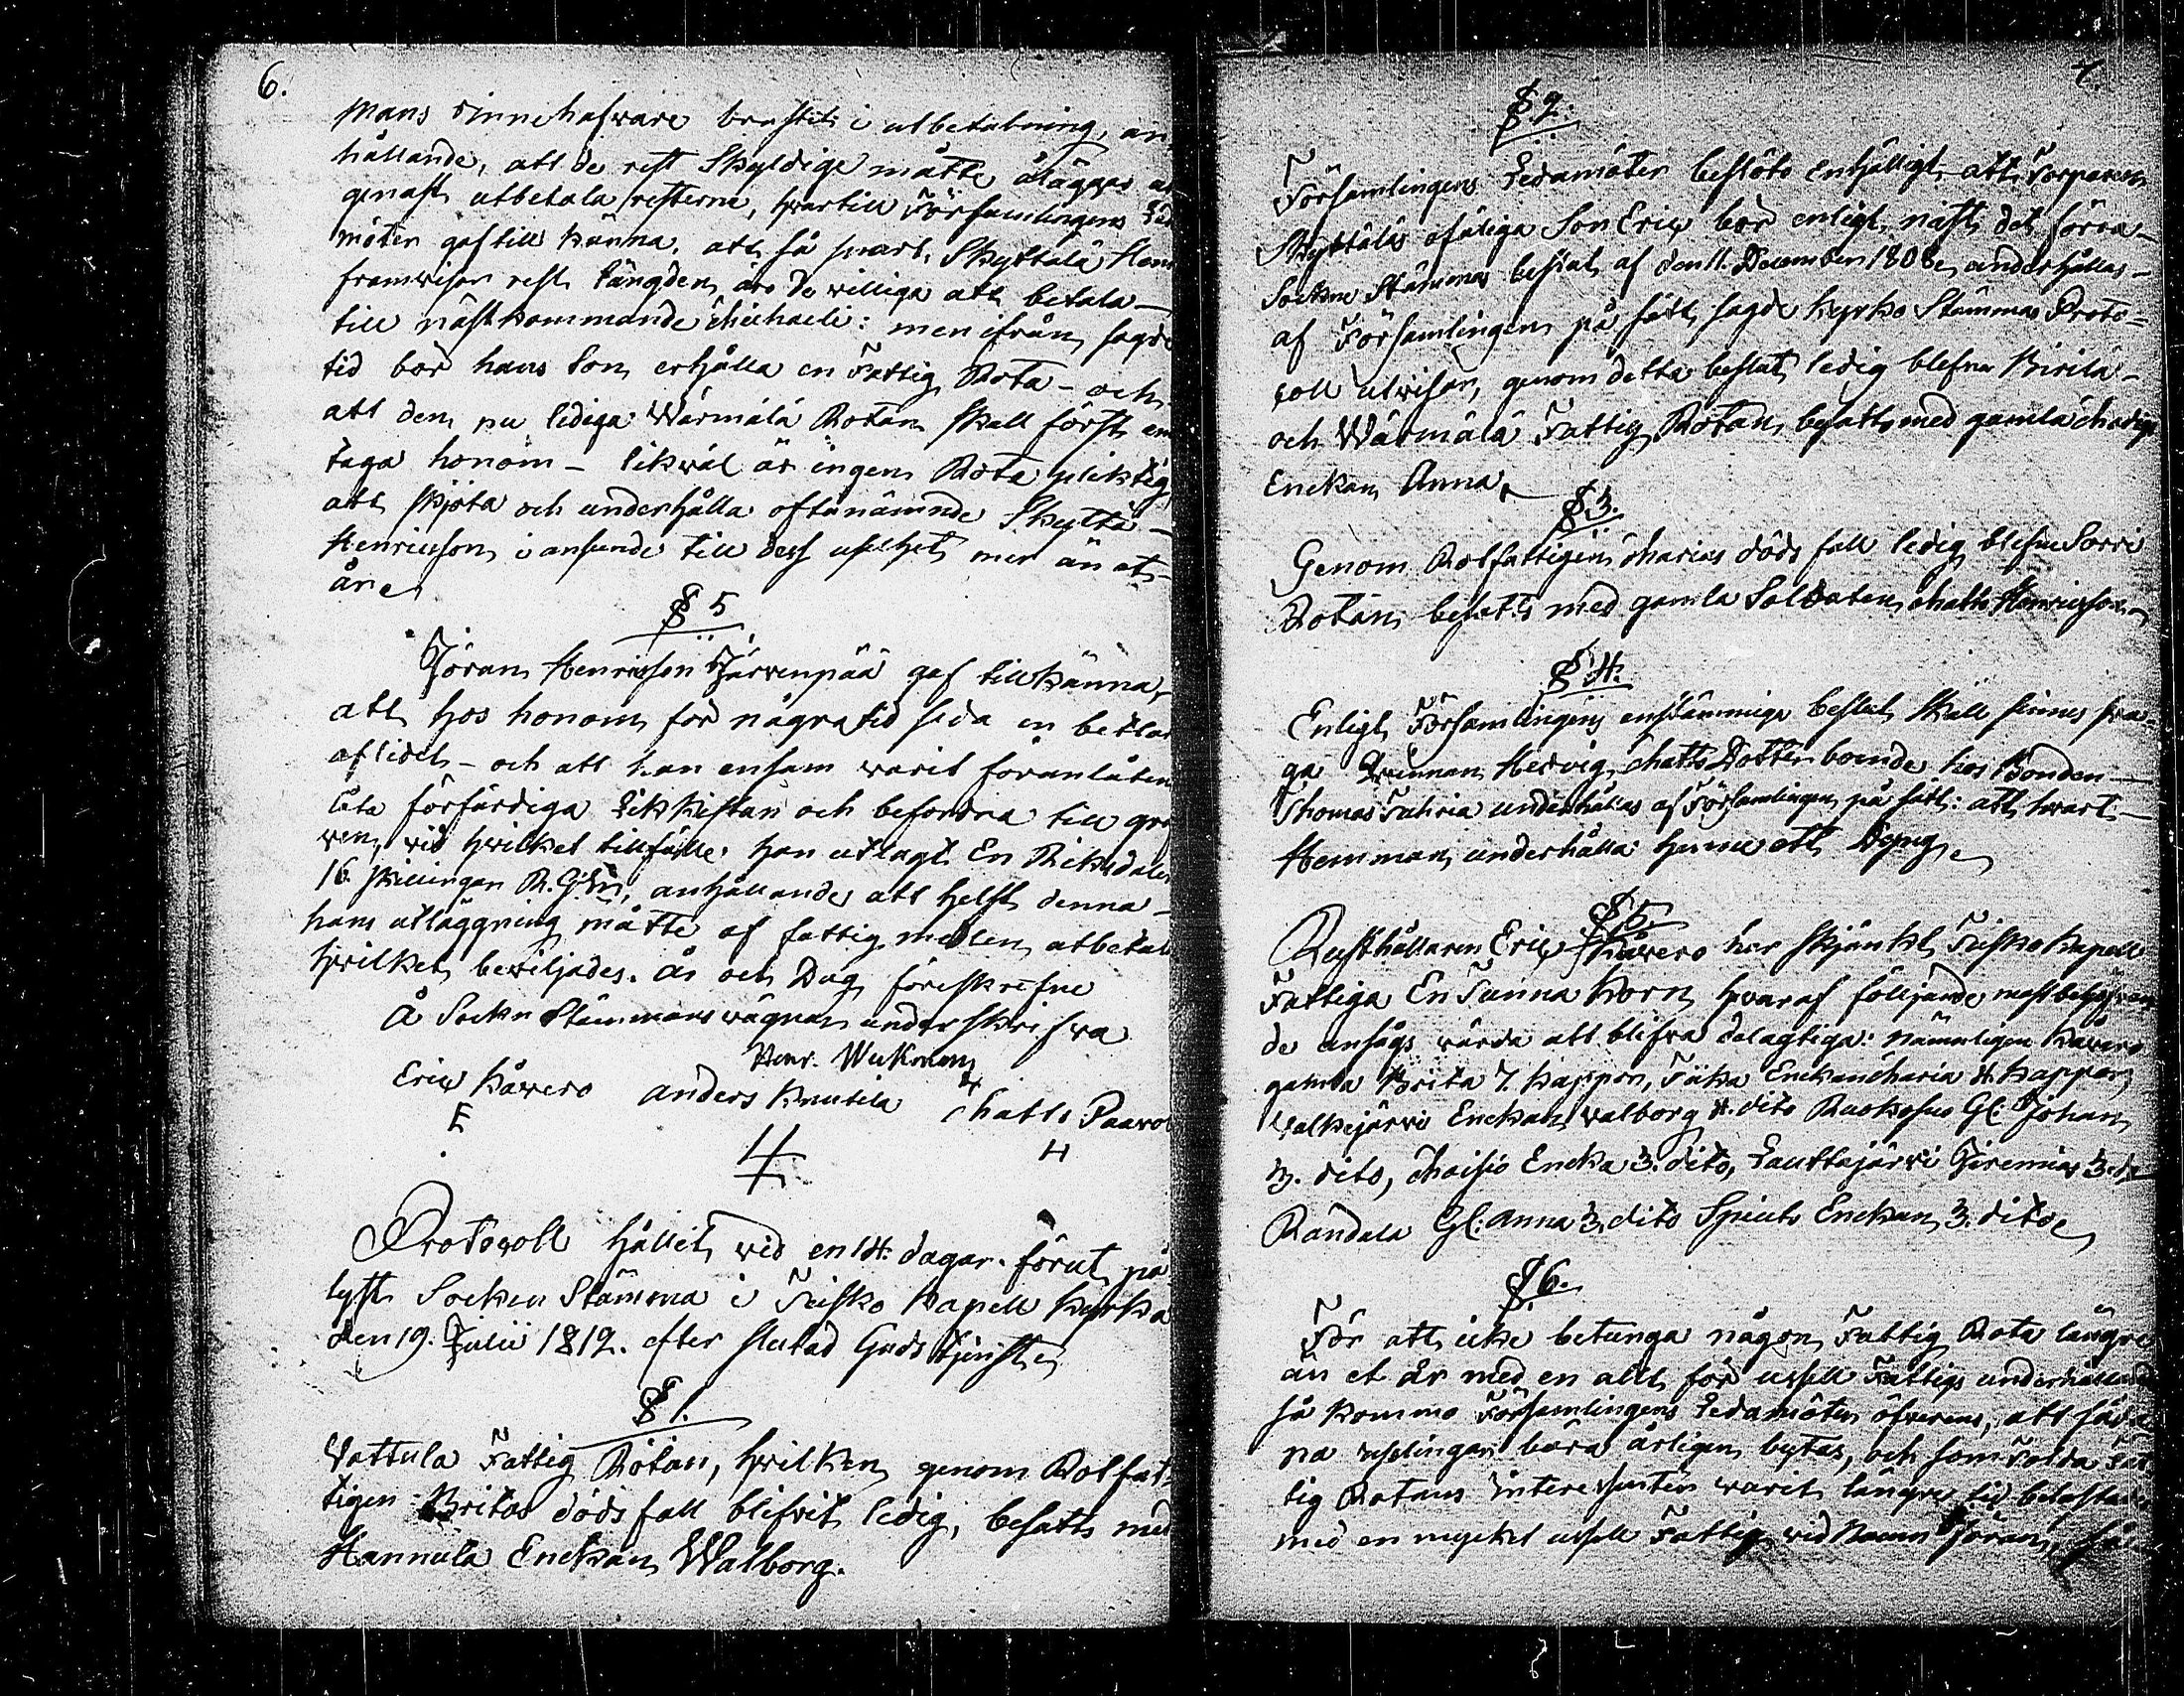 6.
mans innehafware brustit i utbetalning, an
hållande, att de rest Skyldige måtte åläggas at
genast utbetala resterne, hvartill Församlingens Led
möter gaf till känna, att så snart Skyttälä Hen
framvisar rest längden, äro de villiga att betala
till nästkommande Michaeli: men ifrån sagde
tid bör hans Son erhålla en Fattig Rota - och
att den nu lediga Wärmälä Rotan skall först em
taga honom - likväl är ingen Rota pliktig
att skjöta och underhålla oftanämnde Skyttä-
Henricsson i anseende till dess uselhet mer än et
år.
§ 5
Jöran Henricsson Järvenpää gaf tillkänna,
att hos honom för någratid seda en betlar
aflidit - och att han ensam varit föranlåten
låta förfärdiga Likkistan och befordra till gra
ven, vid hvilket tillfälle han utlagt En Riksdaler
16 skillingar R.Gds, anhållande att helst denna
hans utläggning måtte af fattig medlen utbetal
hvilket beviljades. År och Dag föreskrefne
Å Sockn Stämmans vägnar underskrifva
Henr. Wekman
Eric Kåvero Anders Knutila Matts Paavo
E 4 H
Protocoll hållit vid en 14 dagar förut på
lyst Socken Stämma i Teisko Kapell Kyrka
den 19. Julii 1812. efter slutad Gudstjenst.
§ 1.
Vattula Fattig Rotan, hvilken genom Rotfat
tigen Britas dödsfall blifvit ledig, besatts med
Hannula Enckan Walborg.
7.
§ 2.
Församlingens Ledamöter beslöto Enhälligt att Torparen
Skyttäläs ofäliga Son Eric bör enligt näst det förra
Sockne Stämmas beslut af den 11. December 1808 underhållas
af Församlingen på sätt sagde Kyrko Stämmas Proto-
coll utvisar, genom detta beslut ledig blefne Kirilä-
och Wärmälä Fattig Rotan, besatts med gamla
Enckan Anna.
§ 3.
Genom Rotfattigens Marias dödsfall ledig blefne Sorri
Rotan, besatts med gamla Soldaten Matts Henricsson
§ 4.
Enligt Församlingens enstämmige beslut skall sinnes sva-
ga Qvinnan Hedvig Matts Dotter boende hos Bonden
Thomas underhållas af Församlingen på sätt: att hvart
Hemman underhålla henne ett Dygn.
§ 5.
Rusthållaren Eric Kåvero har skjänkt Teisko Kapell
Fattiga En Tunna Korn, hvaraf följande mäst behöfvan
de ansågs värda att blifva delagtiga: nämnligen Kåvero
gamla Brita 7. kappor, Enckan Maria 4. kappor
Valkejärvi Enckan Walborg 4. dito Gl: Johan
3. dito, Maisio Encka 3. dito, Lauttajärvi Jeremias 3. d
Randala Gl: Anna 3. dito Enckan 3. dito
§ 6.
För att icke betunga någon Fattig Rota längre
än et år med en allt för ussell Fattigs underhållande
så kommo Församlingens Ledamöter öfverens, att såda
na usslingar böra årligen bytas, och som
tig Rotans Interessenter varit längre tid belastade
med en mycket ussell Fattig vid Namn Jöran, så